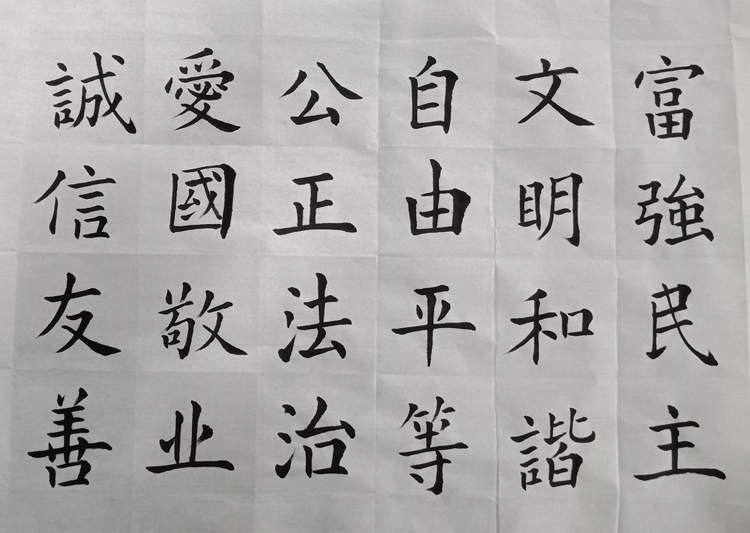 富強民主
文明和諧
自由平等
公正法治
愛國敬业
誠信友善